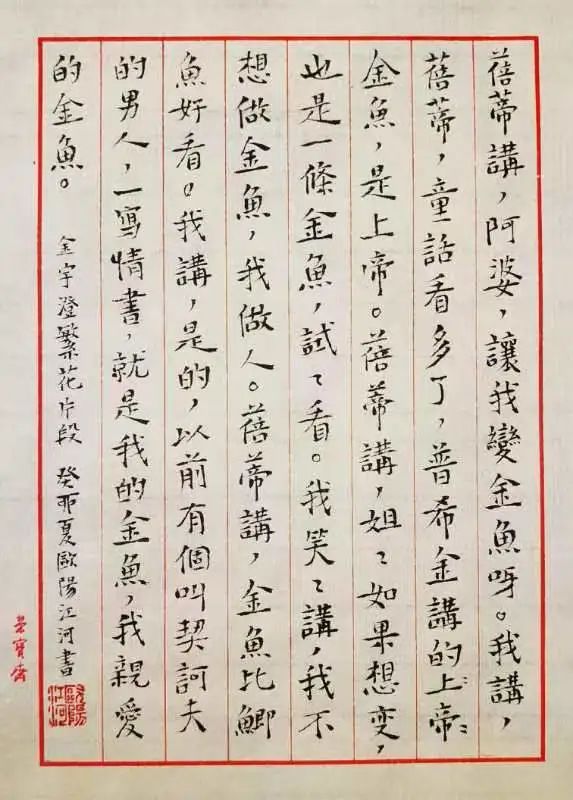 蓓蒂講，阿婆，讓我變金魚呀。我講，
蓓蒂，童話看多了，普希金講的上帝
金魚，是上帝。蓓蒂講，姐〻如果想变，
也是一條金魚，試〻看。我笑〻講，我不
想做金魚，我做人。蓓蒂講，金魚比鯽
魚好看。我講，是的，以前有個叫契訶夫
的男人，一寫情書，就是我的金魚，我親愛
的金魚。
金宇澄繁花片段 癸卯夏歐陽江河書
歐陽江河
榮寶齋